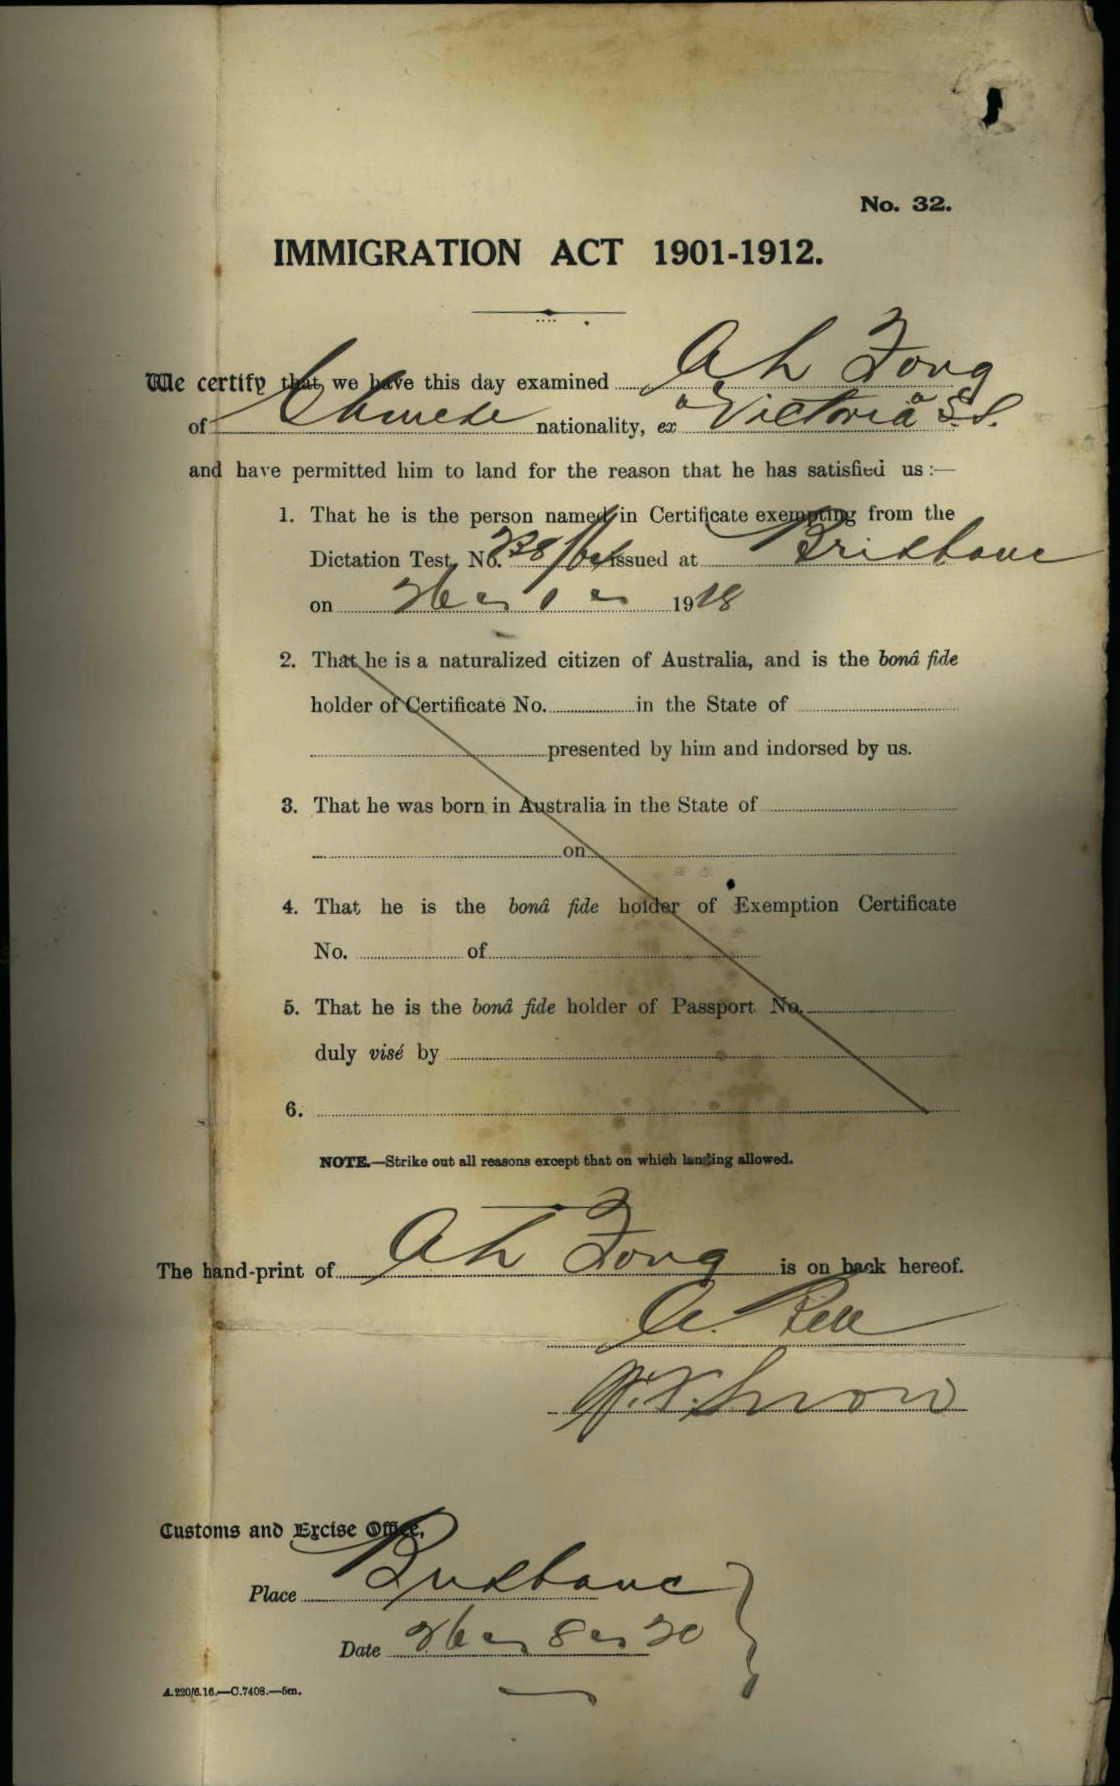 No. 32.
IMMIGRATION ACT 1901-1912.
We certify that we have this day examined Ah Fong
of Chinese nationality, ex "Victoria" S.S.
and have permitted him to land for the reason that he has satisfied us :—
1. That he is the person named in Certificate exempting from the
Dictation Test, No. issued at Brisbane
on 26 . 1 . 1918
2. That he is a naturalized citizen of Australia, and is the bonâ fide
holder of Certificate No. in the State of
presented by him and indorsed by us.
3. That he was born in Australia in the State of
on
4. That he is the bonâ fide holder of Exemption Certificate
No. of
5. That he is the bonâ fide holder of Passport No.
duly visé by
6.
NOTE.—Strike out all reasons except that on which landing allowed.
The hand-print of Ah Fong is on back hereof.
Snow
Customs and Excise Office,
Place Brisbane
Date 26 . 8 . 20
A.220/6.16.—C.7408.—5m.